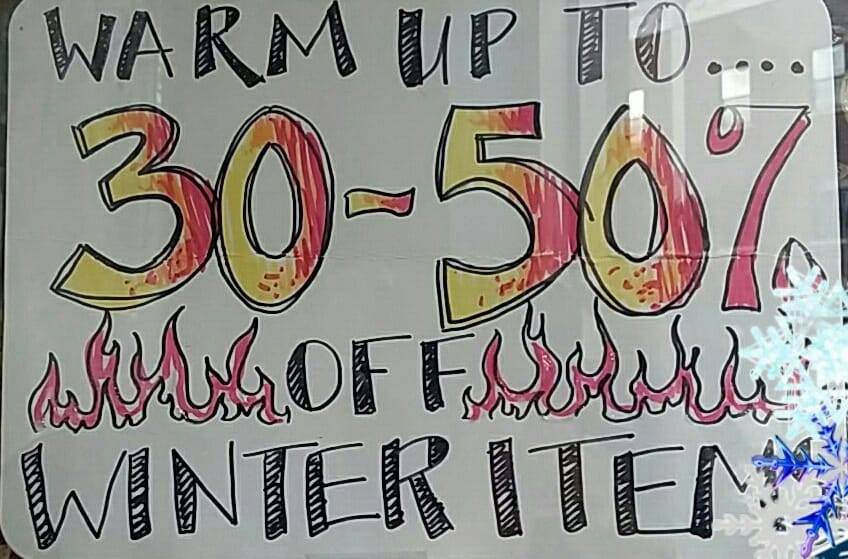 WARM UP TO....
30-50%
OFF
WINTER ITEM